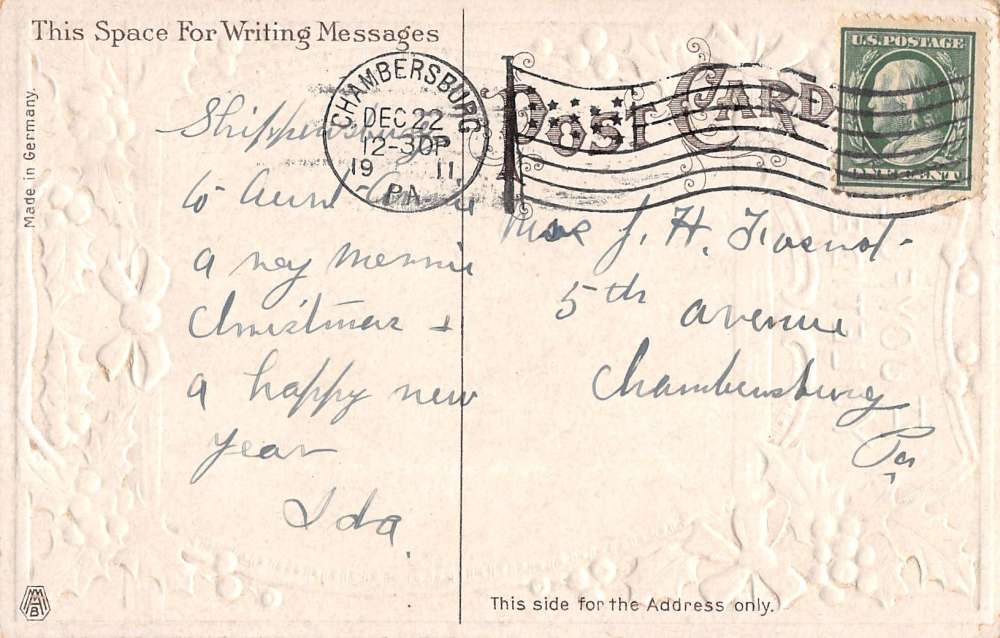 This Space For Writing Messages
Made in Germany.
POST CARD
U.S. POSTAGE
ONE CENT
CHAMBERSBURG
DEC 22
12-30P
19 11
PA.
Shippensburg
to Aunt
a ney merrie
Christmas &
a happy new
year
Ida
J. H.
5th avenue
Chambersburg
Pa
This side for the Address only.